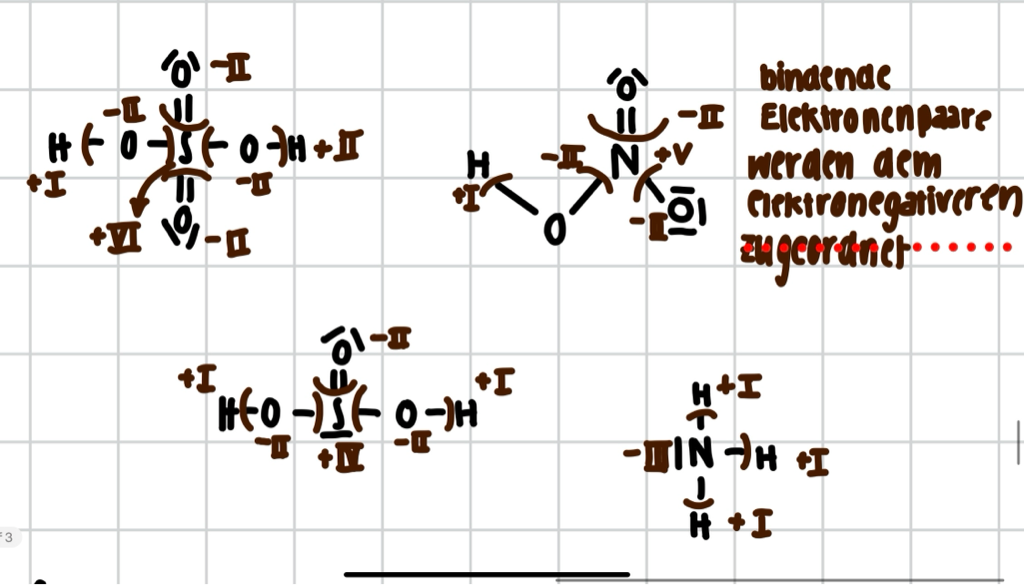 O -II
-II
H O S O H +II
+I -II
+VI O -II
O
-II
H -II N +V
+I
O -II O
bindende
Elektronenpaare
werden dem
elektronegativeren
zugeordnet
O -II
+I +I
H O S O H
-II +IV -II
H +I
-III N H +I
H +I
f 3